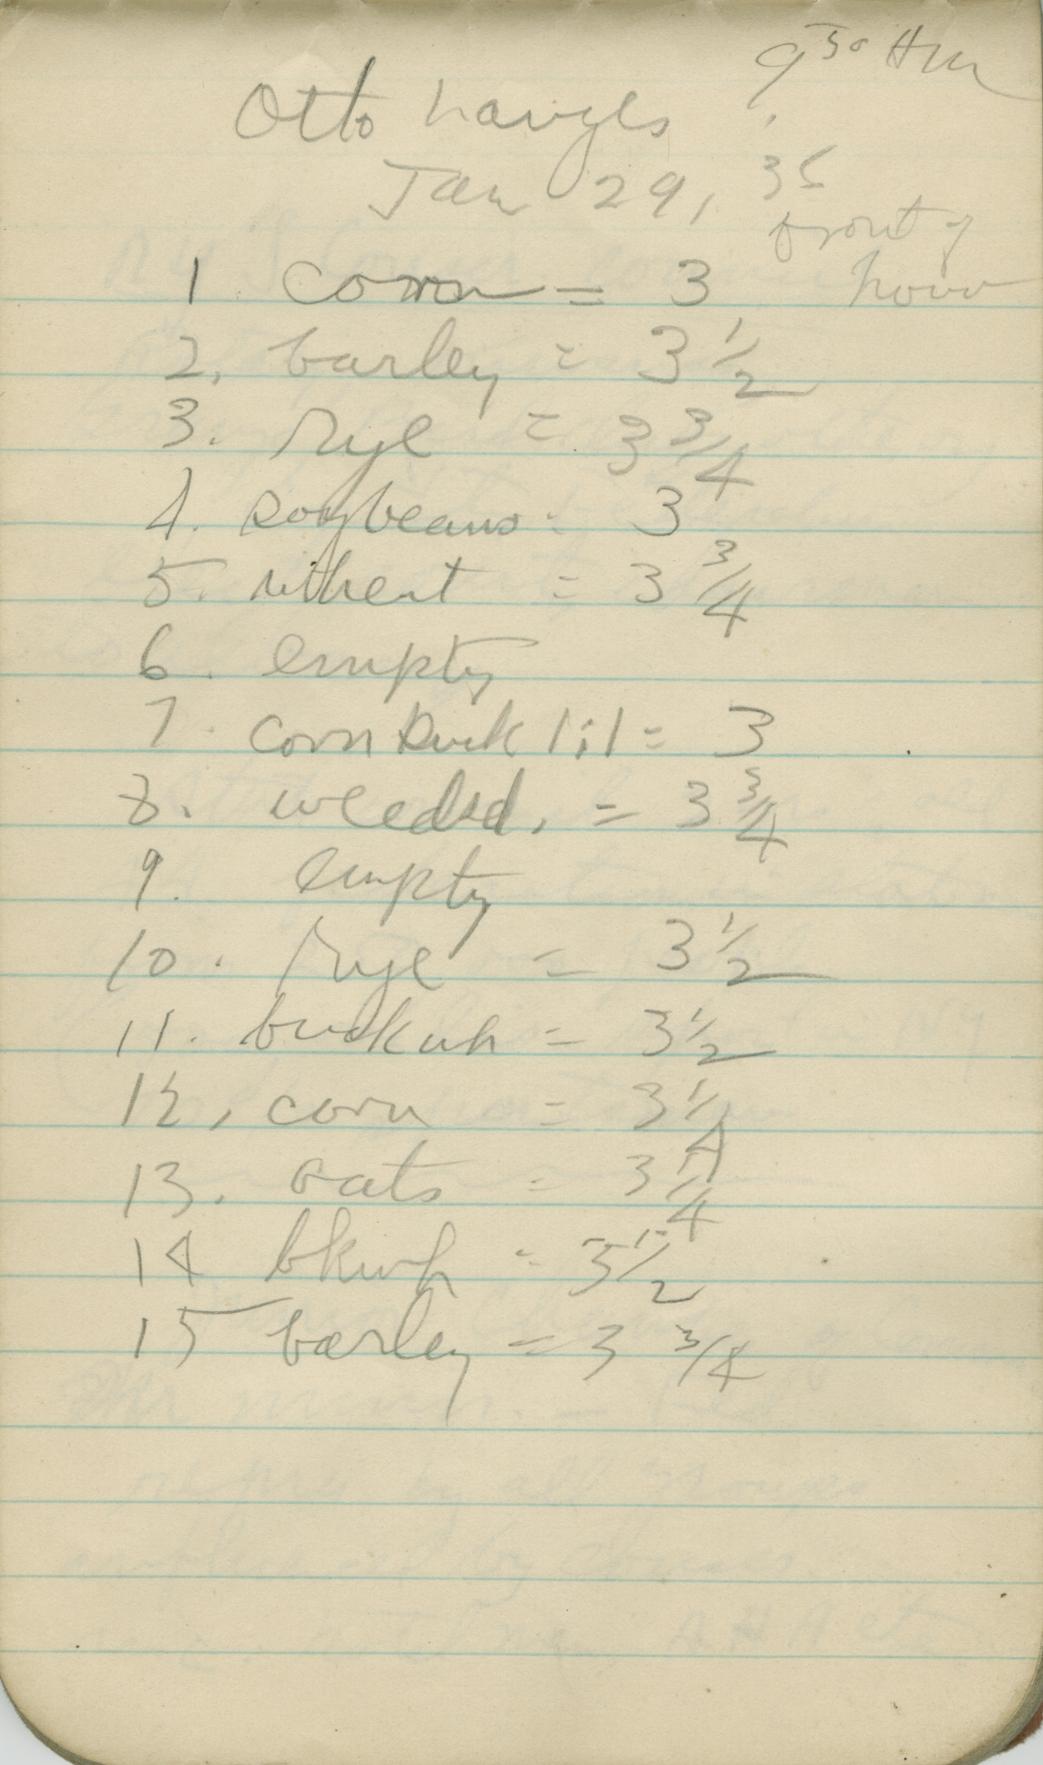 9 30 AM
Otto
Jan 29, 35
front of
1 corn = 3
2. barley = 3 1/2
3. Rye = 3 3/4
4. soybeans = 3
5. wheat = 3 3/4
6. empty
7. corn 1:1 = 3
8. weedsd. = 3 3/4
9. empty
10. Rye = 3 1/2
11. buckwh = 3 1/2
12, corn = 3 1/4
13. oats = 3 1/4
14 bkwh = 3 1/2
15 barley = 3 3/4